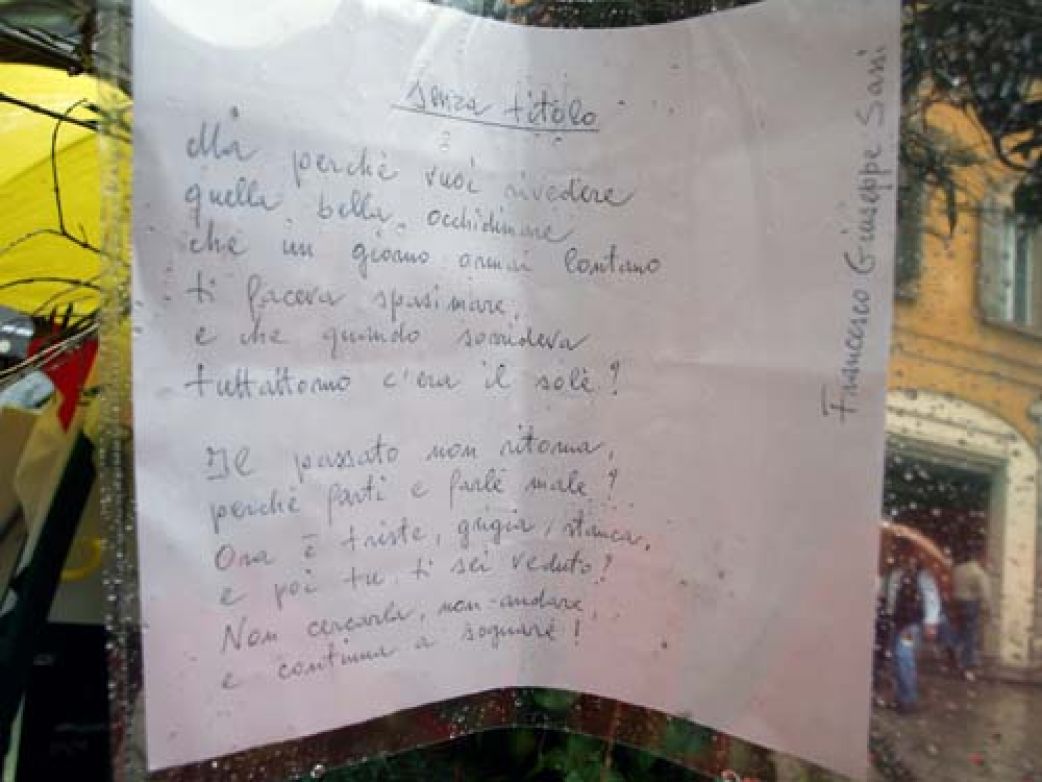 senza titolo
Ma perchè vuoi rivedere
quella bella occhidimare
che un giorno ormai lontano
ti faceva spasimare,
e che quando sorrideva
tuttattorno c'era il sole?
Il passato non ritorna,
perchè farti e farle male?
Ora è triste, grigia, stanca,
e poi tu ti sei veduto?
Non cercarla, non andare,
e continua a sognare!
Francesco Giuseppe Sassi